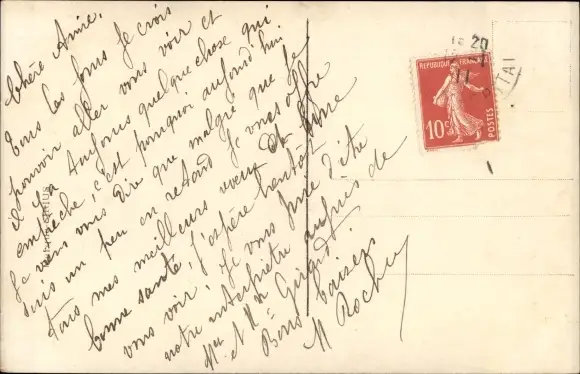 Chère Amie,
Tous les jours je crois
pouvoir aller vous voir et
il y a toujours quelque chose qui
empêche, c'est pourquoi aujourd'hui
je viens vous dire que malgré que je
suis un peu en retard je vous offre
tous mes meilleurs voeux et bonne
bonne santé, j'espère bientôt
vous voir. Je vous prie d'être
notre interprète auprès de
Mr et Mme Girard.
Bons baisers
M Rochu
REPUBLIQUE FRANÇAISE
10c
POSTES
20
11